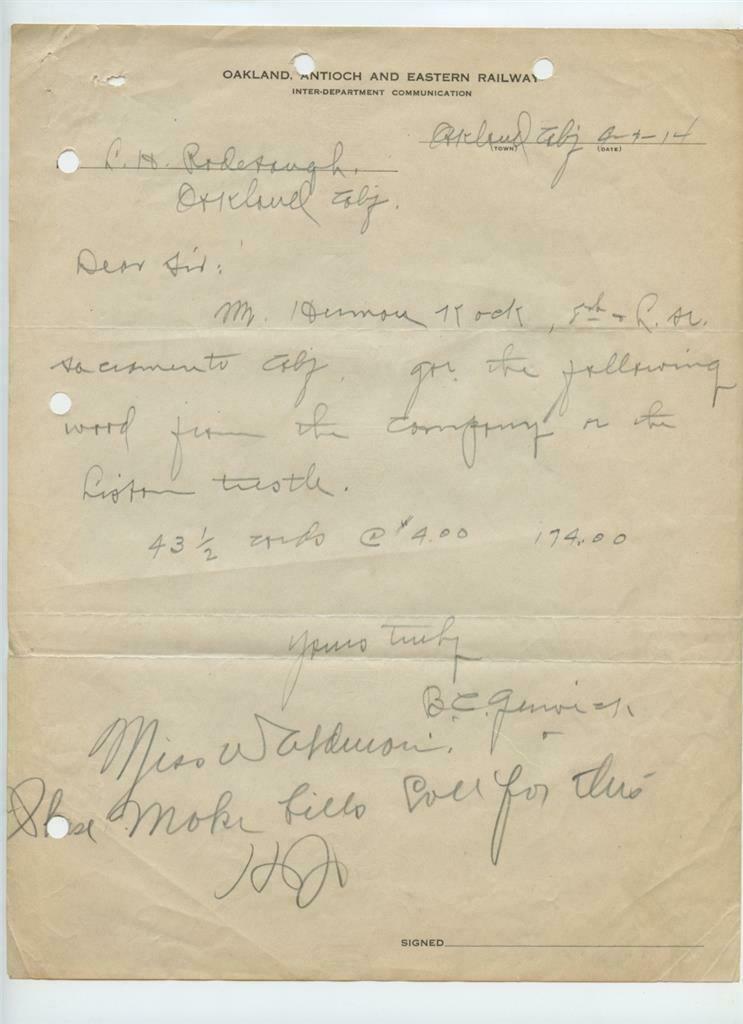 OAKLAND, ANTIOCH AND EASTERN RAILWAY
INTER-DEPARTMENT COMMUNICATION
Oakland -14
(TOWN) (DATE)
L. H. Rodebaugh.
Oakland
Dear Sir:
Mr. Herman Kock, & L. St.
Sacramento got the following
wood from the company on the
Lisbon trestle.
43 1/2 cords @ $4.00 174.00
Yours truly
B.C.
Miss
Please Make bills Coll for this
SIGNED